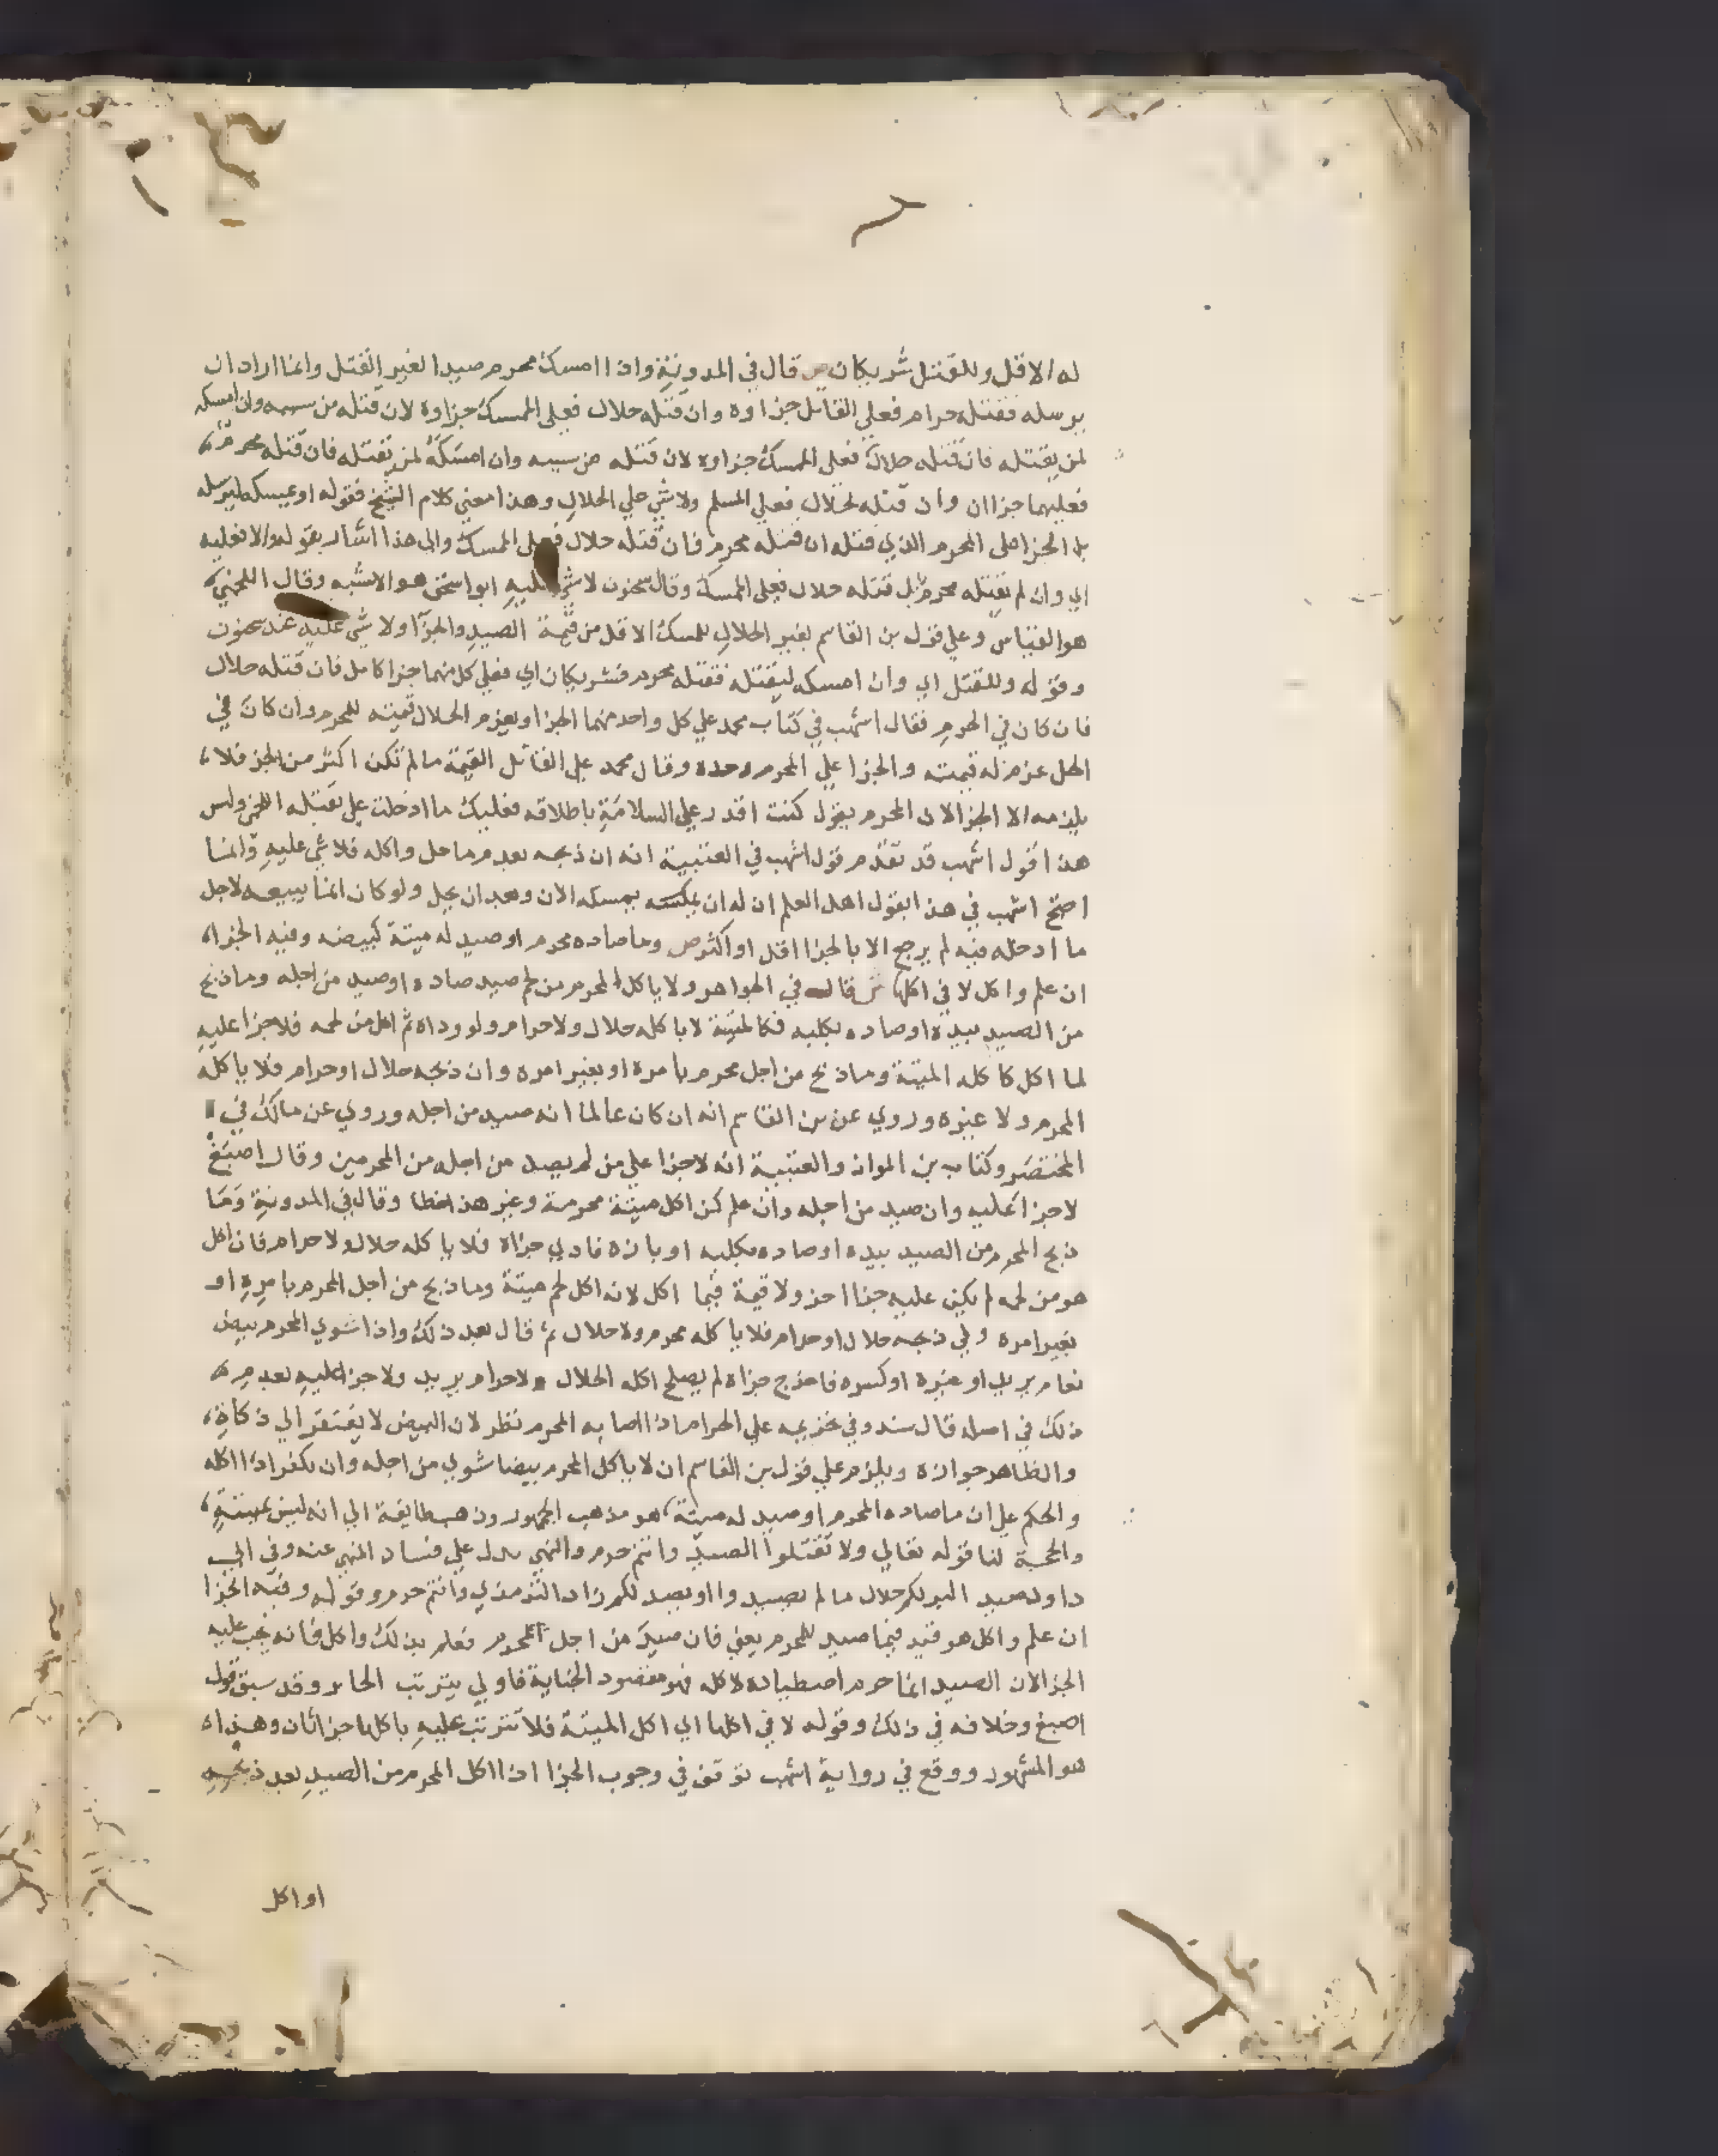 له الاقل وللقتل شريكان ص قال في المدونة واذا امسك محرم صيدا لغير القتل وانما اراد ان
يرسله فقتله حرام فعلي القاتل جزاوه وان قتله حلال فعلي الممسك جزاوه لان قتله من سببه وان امسكه
لمن يقتله فان قتله حلال فعلي الممسك جزاوه لان قتله من سببه وان امسكه لمن يقتله فان قتله محرم
فعليهما جزاان وان قتله حلال فعلي المسلم ولا شي علي الحلال وهذا معني كلام الشيخ فقوله او يمسكه ليرسله
بل الجزا علي المحرم الذي قتله ان قتله محرم فان قتله حلال فعلي الممسك والي هذا اشار بقوله والا فعليه
اي وان لم يقتله محرم بل قتله حلال فعلي الممسك وقال سحنون لا شي عليه ابو اسحق هو الاشبه وقال اللخمي
هو القياس وعلي قول بن القاسم يغير الحلال للمسك الاقل من قيمة الصيد والجزا ولا شي عليه عند سحنون
وقوله وللقتل اي وان امسكه ليقتله فقتله محرم فشريكان اي فعلي كل منهما جزا كامل فان قتله حلال
فان كان في الحرم فقال اشهب في كتاب محمد علي كل واحد منهما الجزا ويغرم الحلال قيمته للمحرم وان كان في
الحل غرم له قيمته والجزا علي المحرم وحده وقال محمد علي القاتل القيمة ما لم تكن اكثر من الجز فلا
يلزمه الا الجزا لان المحرم يقول كنت اقدر علي السلامة باطلاقه فعليك ما ادخلت علي بقتله اللخمي وليس
هذا قول اشهب قد تقدم قول اشهب في العتبية انه ان ذبحه بعد ما حل واكله فلا شي عليه وانما
احتج اشهب في هذا بقول اهل العلم ان له ان يمسكه الان وبعد ان يحل ولو كان انما يبيعه لاجل
ما ادخله فيه لم يرجع الا بالجزا اقل او اكثر ص وما صاده محرم او صيد له ميتة كبيضه وفيه الجزا
ان علم واكل لا في اكلها ش قال في الجواهر ولا ياكل المحرم من لحم صيد صاده او صيد من اجله وما ذبح
من الصيد بيده او صاده بكلبه فكالميتة لا ياكله حلال ولا حرام ولو وداه ثم اكل من لحمه فلا جزا عليه
لما اكل كاكله الميتة وما ذبح من اجل محرم بامره او بغير امره وان ذبحه حلال او حرام فلا ياكله
المحرم ولا غيره وروي عن بن القاسم انه ان كان عالما انه صيد من اجله وروي عن مالك في
المختصر وكتاب بن المواز والعتبية انه لا جزا علي من لم يصد من اجله من المحرمين وقال اصبغ
لا جزا عليه وان صيد من اجله وان علم كمن اكل ميتة محرمة وغير هذا خطا وقال في المدونة وما
ذبح المحرم من الصيد بيده او صاده بكلبه او بازه فادي جزاه فلا ياكله حلال ولا حرام فان اكل
هو من لحمه لم يكن عليه جزا اخر ولا قيمة فيما اكل لانه اكل لحم ميتة وما ذبح من اجل المحرم بامره او
بغير امره ولي ذبحه حلال او حرام فلا ياكله محرم ولا حلال ثم قال بعد ذلك واذا شوي المحرم بيض
نعام بربد او غيره او كسره فاخرج جزاه لم يصلح اكله الحلال ولا حرام يريد ولا جزا عليه بعد
ذلك في اصله قال سند وفي تحريمه علي الحرام اذا اصابه المحرم نظر لان البيض لا يفتقر الي ذكاة
والظاهر جوازه ويلزم علي قول بن القاسم ان لا ياكل المحرم بيضا شوي من اجله وان يكفر اذا اكله
والحكم علي ان ما صاده المحرم او صيد له ميتة هو مذهب الجمهور وذهب طايفة الي انه ليس بميتة
والحجة لنا قوله تعالي ولا تقتلوا الصيد وانتم حرم والنهي يدل علي فساد المنهي عنه وفي ابي
داود صيد البر لكم حلال ما لم تصيدوا او يصد لكم زاد الترمذي وانتم حرم وقوله وفيه الجزا
ان علم واكل هو قيد فيما صيد للمحرم يعني فان صيد من اجل المحرم فعلم بذلك واكل فانه يجب عليه
الجزا لان الصيد انما حرم اصطياده لاكله فهو مقصود الجناية فاولي يترتب الجزا وقد سبق قول
اصبغ وخلافه في ذلك وقوله لا في اكلها اي اكل الميتة فلا تترتب عليه باكلها جزا ثان وهذا
هو المشهور ووقع في رواية اشهب توقف في وجوب الجزا اذا اكل المحرم من الصيد بعد ذبحه
او اكل